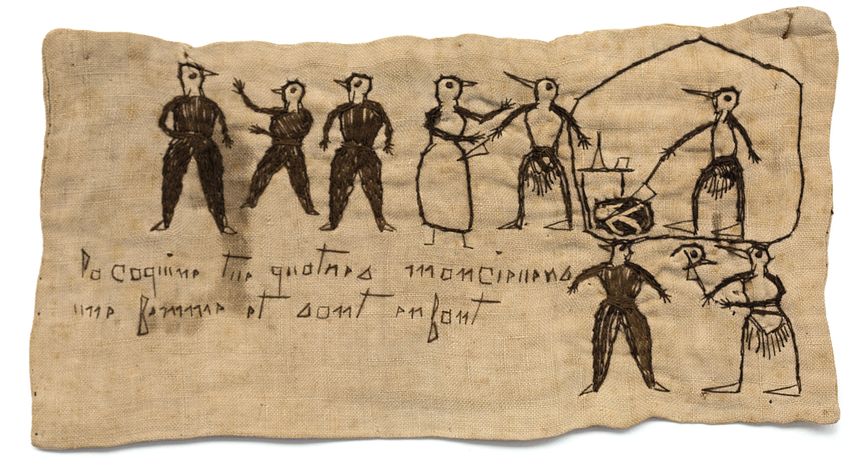 La coquine tue quatres moncieuers
une femme et sont enfant